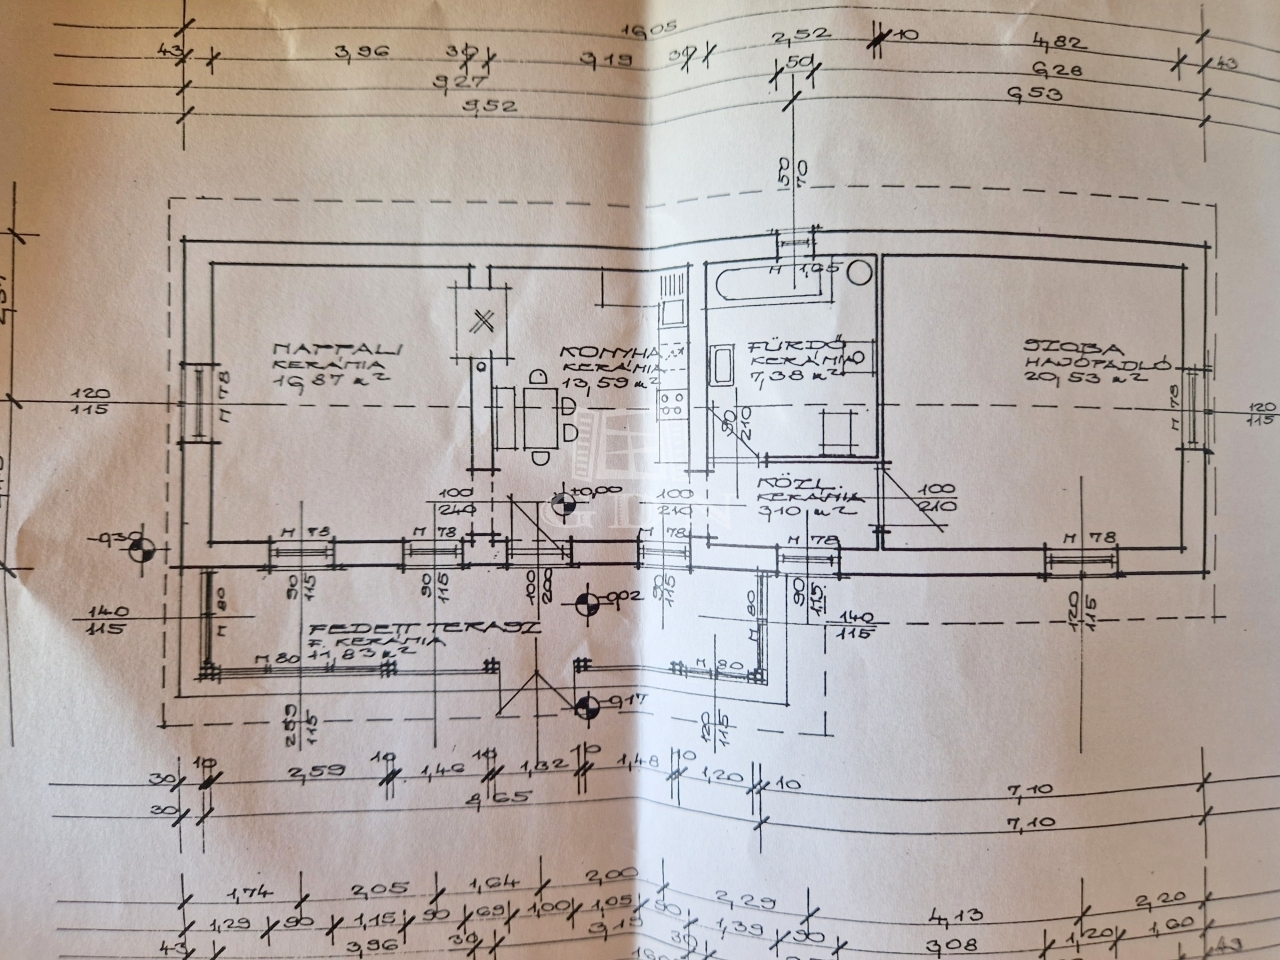 16,05
43
3,96
30
3,19
30
2,52
10
4,82
43
9,27
50
6,28
9,52
6,53
50
70
M 1,65
NAPPALI
KERÁMIA
16,87 m²
KONYHA
KERÁMIA
13,59 m²
FÜRDŐ
KERÁMIA
7,38 m²
SZOBA
HAJÓPADLÓ
20,53 m²
120
115
M 78
M 78
120
115
90
210
±0,00
100
240
100
210
KÖZL.
KERÁMIA
3,10 m²
100
210
-0,30
M 78
M 78
M 78
M 78
M 78
90
115
90
115
100
200
90
115
90
115
120
115
-0,02
140
115
M 80
M 80
140
115
FEDETT TERASZ
F. KERÁMIA
11,83 m²
M 80
M 80
-0,17
259
115
120
115
30
10
2,59
10
1,46
10
1,32
10
1,48
10
1,20
10
7,10
30
8,65
7,10
1,74
2,05
1,64
2,00
2,29
4,13
2,20
1,29
90
1,15
90
69
1,00
1,05
90
1,39
90
3,08
1,20
1,60
43
3,96
30
3,19
30
43